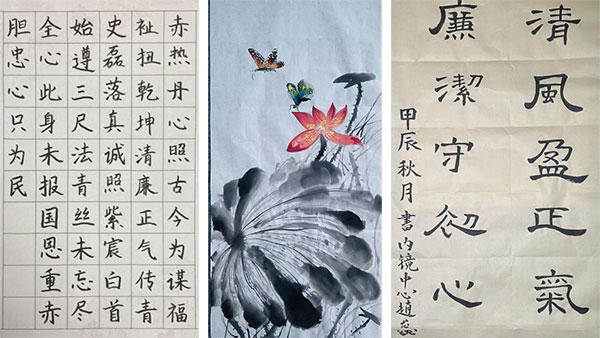 赤热丹心照古今为谋福
祉扭乾坤清廉正气传青
史磊落真诚照紫宸白首
始遵三尺法青丝未忘尽
全心此身未报国恩重赤
胆忠心只为民
清風盈正氣
廉潔守初心
甲辰秋月書内镜中心趙蕊